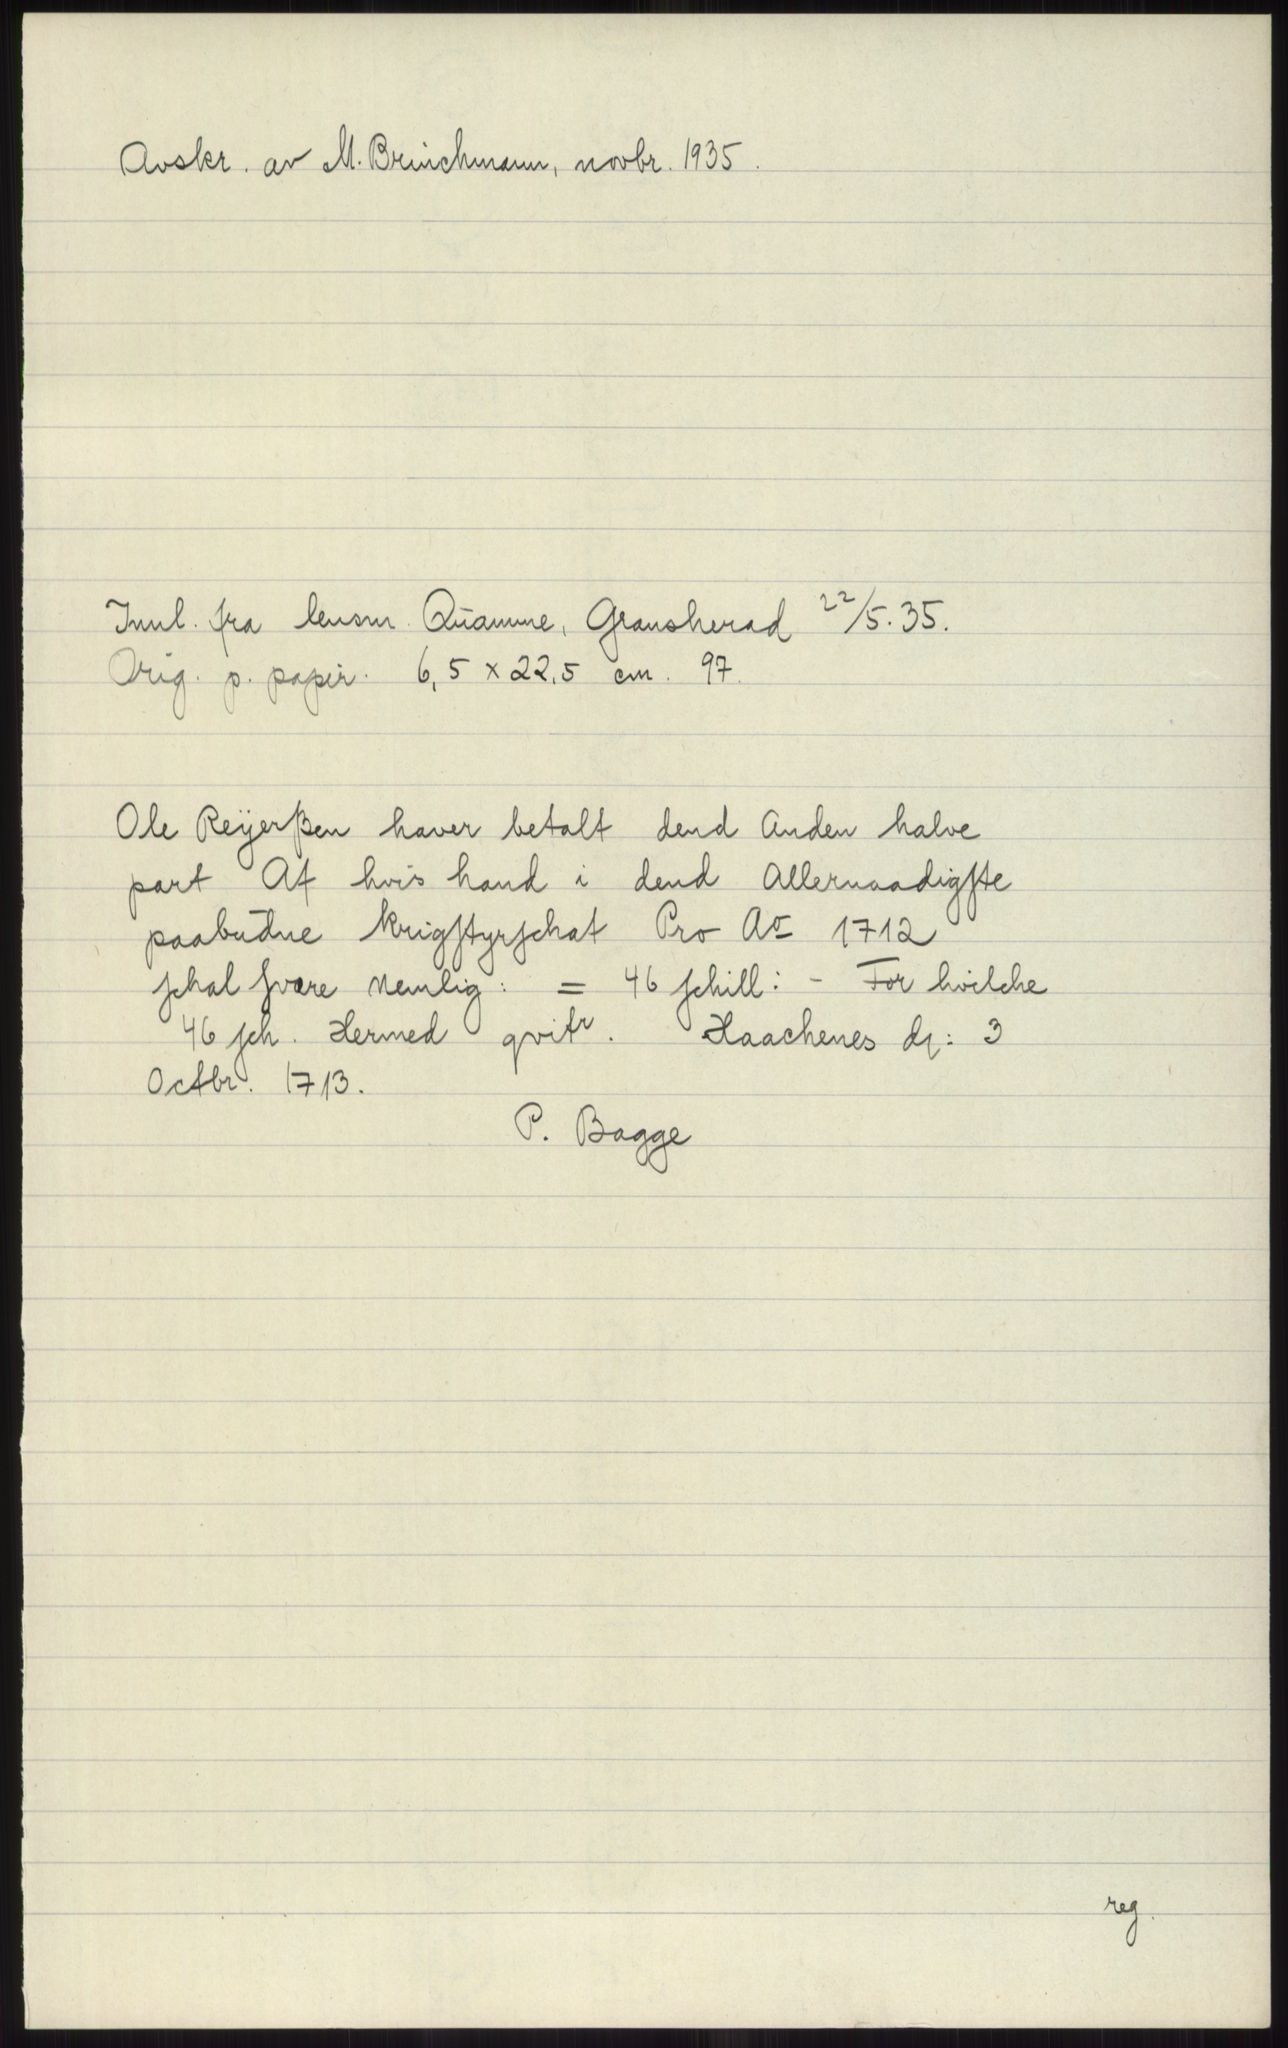 Avskr. av M. Brinchmann, novbr. 1935.
Innl. fra lensm. Quamme, Gransherad 22/5.35.
Orig. p. papir. 6,5 x 22,5 cm. 97.
Ole Reÿerßen haver betalt dend Anden halve
part Af hvis hand i dend Allernaadigſte
paabudne Krigſtyrſchat Pro Ao 1712
ſchal ſvare Nemlig: = 46 ſchill: - For hvilche
46 ſch. Hermed qvitr. Haachenes dz: 3
Octbr. 1713.
P. Bagge
reg.